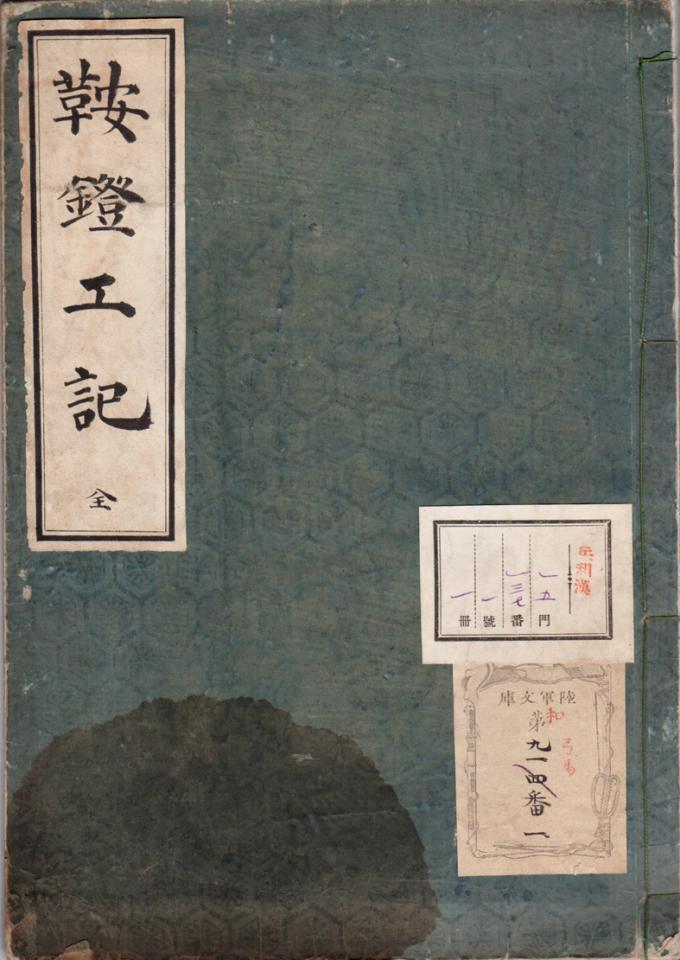 鞍鐙工記 全
一五門
一三七番
一號
一冊
陸軍文庫
和
弓馬
第九一四番一